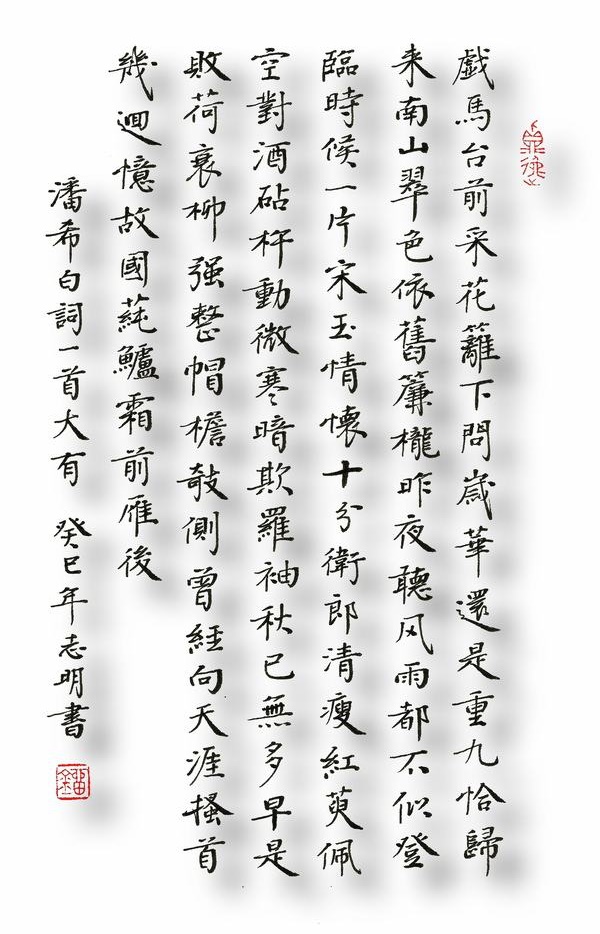 戲馬台前采花籬下問歲華還是重九恰歸
来南山翠色依舊簾櫳昨夜聽风雨都不似登
臨時候一片宋玉情懷十分衛郎清瘦紅萸佩
空對酒砧杵動微寒暗欺羅袖秋已無多早是
敗荷衰柳强整帽檐攲側曾經向天涯搔首
幾迴憶故國蒓鱸霜前雁後
潘希白詞一首大有 癸巳年志明書